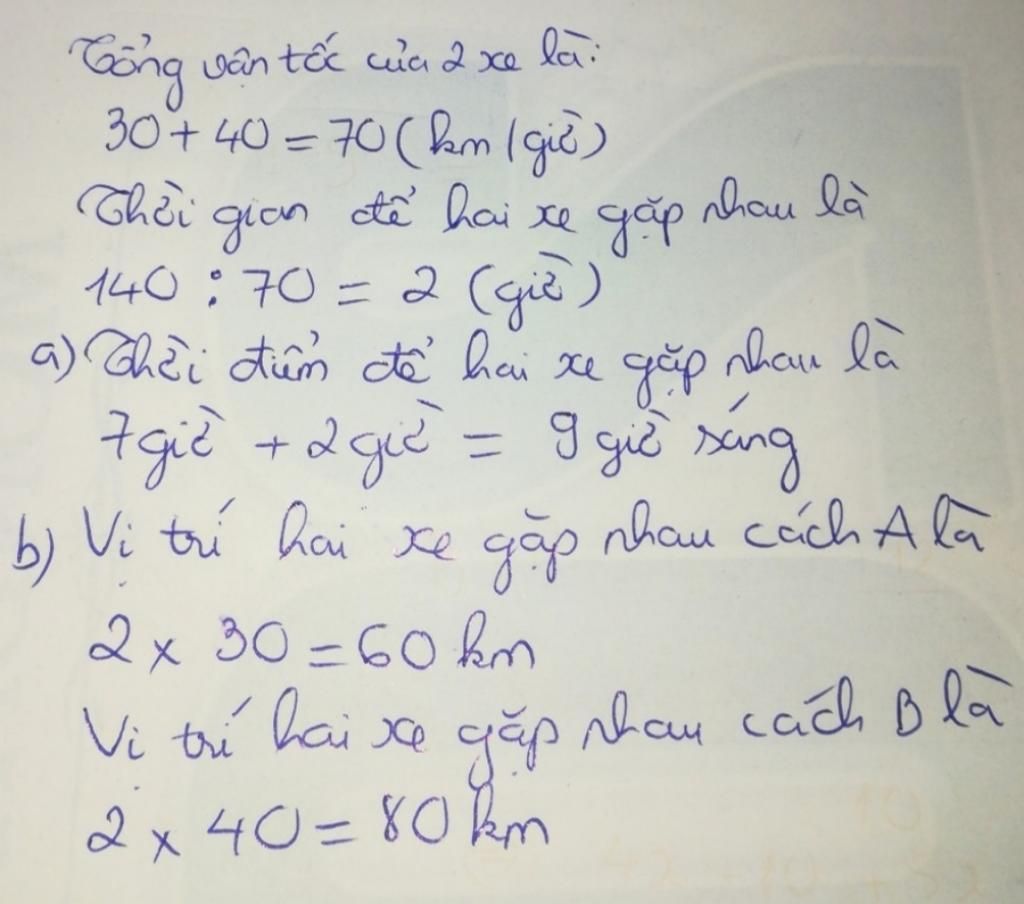 Tổng vận tốc của 2 xe là:
30 + 40 = 70 (km/giờ)
Thời gian để hai xe gặp nhau là
140 : 70 = 2 (giờ)
a) Thời điểm để hai xe gặp nhau là
7giờ + 2giờ = 9 giờ sáng
b) Vị trí hai xe gặp nhau cách A là
2 x 30 = 60 km
Vị trí hai xe gặp nhau cách B là
2 x 40 = 80 km